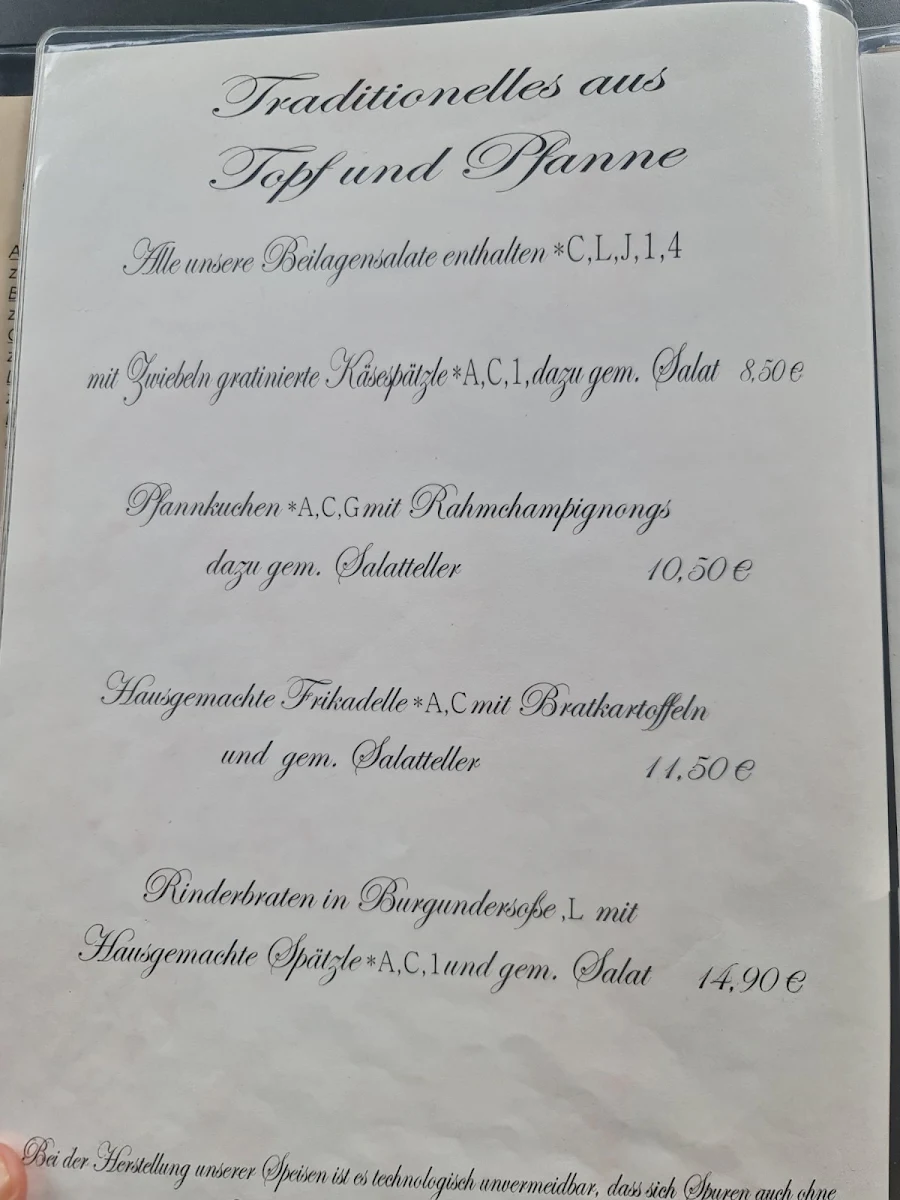 Traditionelles aus
Topf und Pfanne
Alle unsere Beilagensalate enthalten *C,L,J,1,4
mit Zwiebeln gratinierte Käsespätzle *A,C,1,dazu gem. Salat 8,50 €
Pfannkuchen *A,C,G mit Rahmchampignongs
dazu gem. Salatteller 10,50 €
Hausgemachte Frikadelle *A,C mit Bratkartoffeln
und gem. Salatteller 11,50 €
Rinderbraten in Burgundersoße ,L mit
Hausgemachte Spätzle *A,C,1und gem. Salat 14,90 €
Bei der Herstellung unserer Speisen ist es technologisch unvermeidbar, dass sich Spuren auch ohne